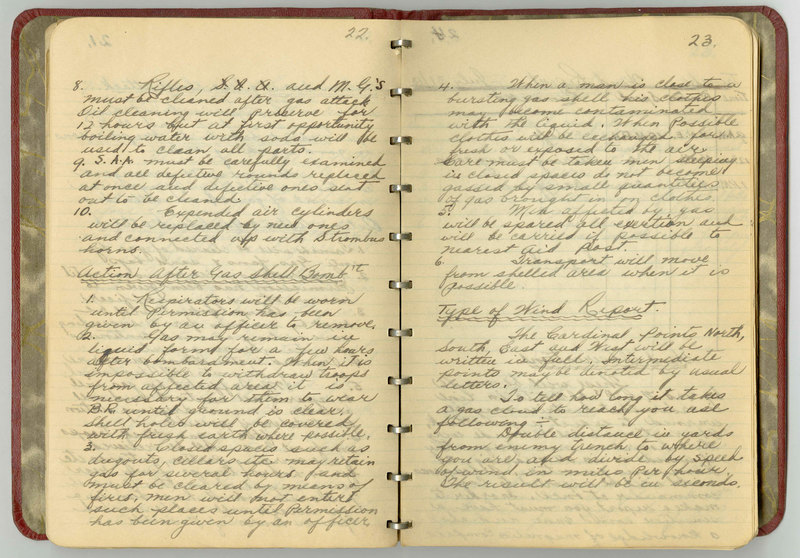 22.
8. Rifles, S.A.A. and M.G.'S
must be cleaned after gas attack
Oil cleaning will preserve for
12 hours but at first opportunity
boiling water with soda will be
used to clean all parts.
9. S.A.A. must be carefully examined
and all defective rounds replaced
at once and defective ones sent
out to be cleaned
10. Expended air cylinders
will be replaced by new ones
and connected up with Strombus
horns.
Action After Gas Shell Bomb't
1. Respirators will be worn
until Permission has been
given by an officer to remove.
2. Gas may remain in
liquid form for a few hours
after bombardment. When it is
impossible to withdraw troops
from affected area it is
necessary for them to wear
B.R. until ground is clear,
shell holes will be covered
with fresh earth where possible.
3. Closed spaces such as
dugouts, cellars etc may retain
gas for several hours and
must be cleared by means of
fires, men will not enter
such places until Permission
has been given by an officer
23.
4. When a man is close to a
bursting gas shell his clothes
may become contaminated
with the liquid. When Possible
clothes will be exchanged for
fresh or exposed to the air
Care must be taken men sleeping
in closed spaces do not become
gassed by small quantities
of gas brought in on clothes.
5. Men affected by gas
will be spared all exertion and
will be carried if possible to
nearest aid Post.
6. Transport will move
from shelled area when it is
possible.
Type of Wind Report.
The Cardinal Points North,
South, East and West will be
written in full. Intermediate
points may be denoted by usual
letters.
To tell how long it takes
a gas cloud to reach you use
following:-
Double distance in yards
from enemy trench to where
you are and divide by speed
of wind in miles Per hour.
The result will be in seconds.